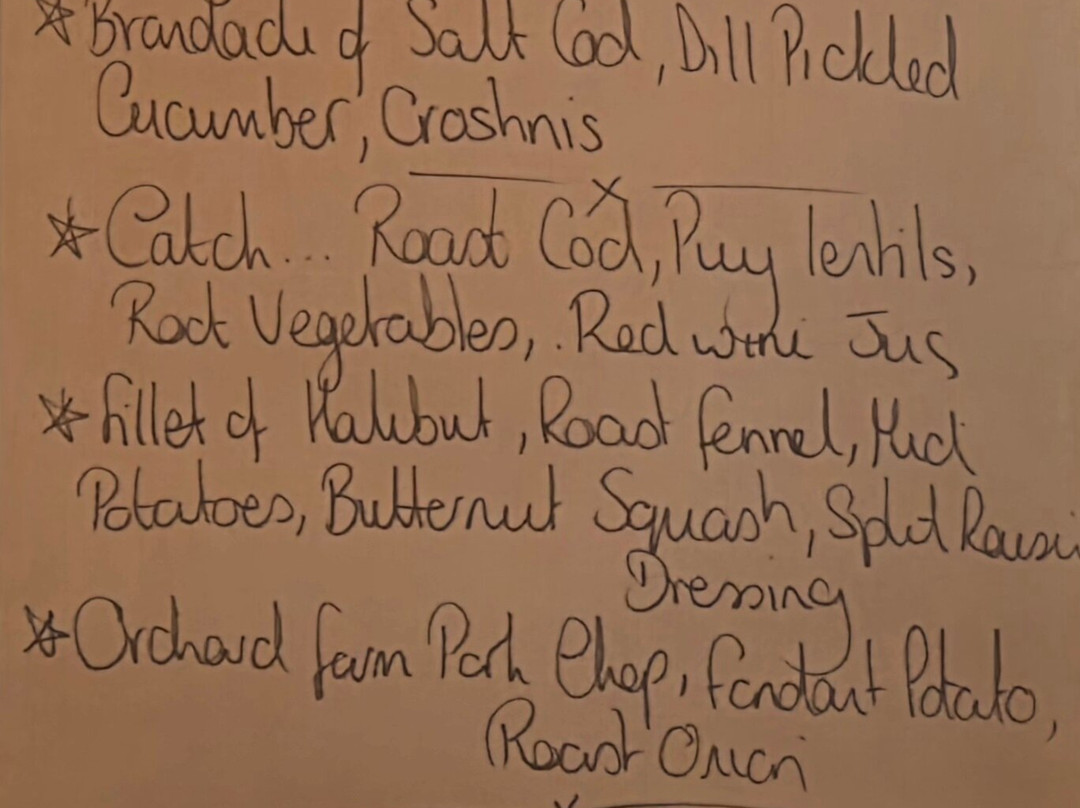 ☆ Brandade of Salt Cod, Dill Pickled
Cucumber, Croshnis
x
☆ Catch... Roast Cod, Puy lentils,
Root Vegetables, Red wine Jus
☆ fillet of Halibut, Roast fennel,
Potatoes, Butternut Squash,
Dressing
☆ Orchard farm Pork Chop, fondant Potato,
Roast Onion